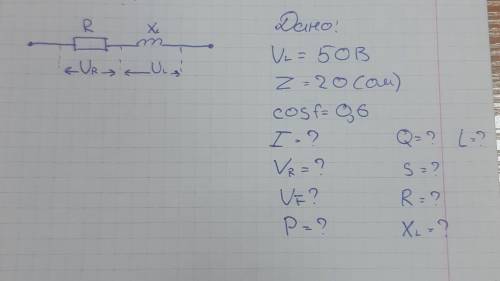 R X_L
U_R U_L
Дано:
U_L = 50В
Z = 20 (ом)
cosf = 0,6
I = ? Q = ? L = ?
U_R = ? S = ?
U = ? R = ?
P = ? X_L = ?